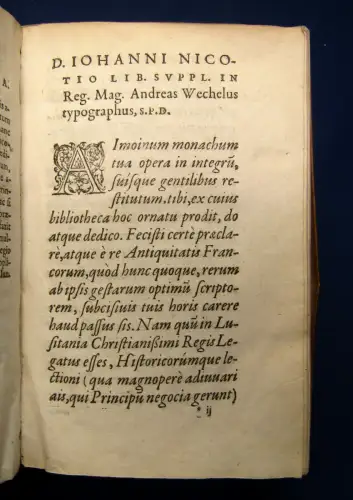 D. IOHANNI NICO-
TIO LIB. SVPPL. IN
Reg. Mag. Andreas Wechelus
typographus, S.P.D.
AImoinum monachum
tua opera in integrũ,
suisque gentilibus re-
stitutum, tibi, ex cuius
bibliotheca hoc ornatu prodit, do
atque dedico. Fecisti certè præcla-
rè, atque è re Antiquitatis Fran-
corum, quòd hunc quoque, rerum
ab ipsis gestarum optimũ scripto-
rem, subcisiuis tuis horis carere
haud passus sis. Nam quũ in Lu-
sitania Christianißimi Regis Le-
gatus esses, Historicorúmque le-
ctioni (qua magnoperè adiuuari
ais, qui Principũ negocia gerunt)
* ij
A.